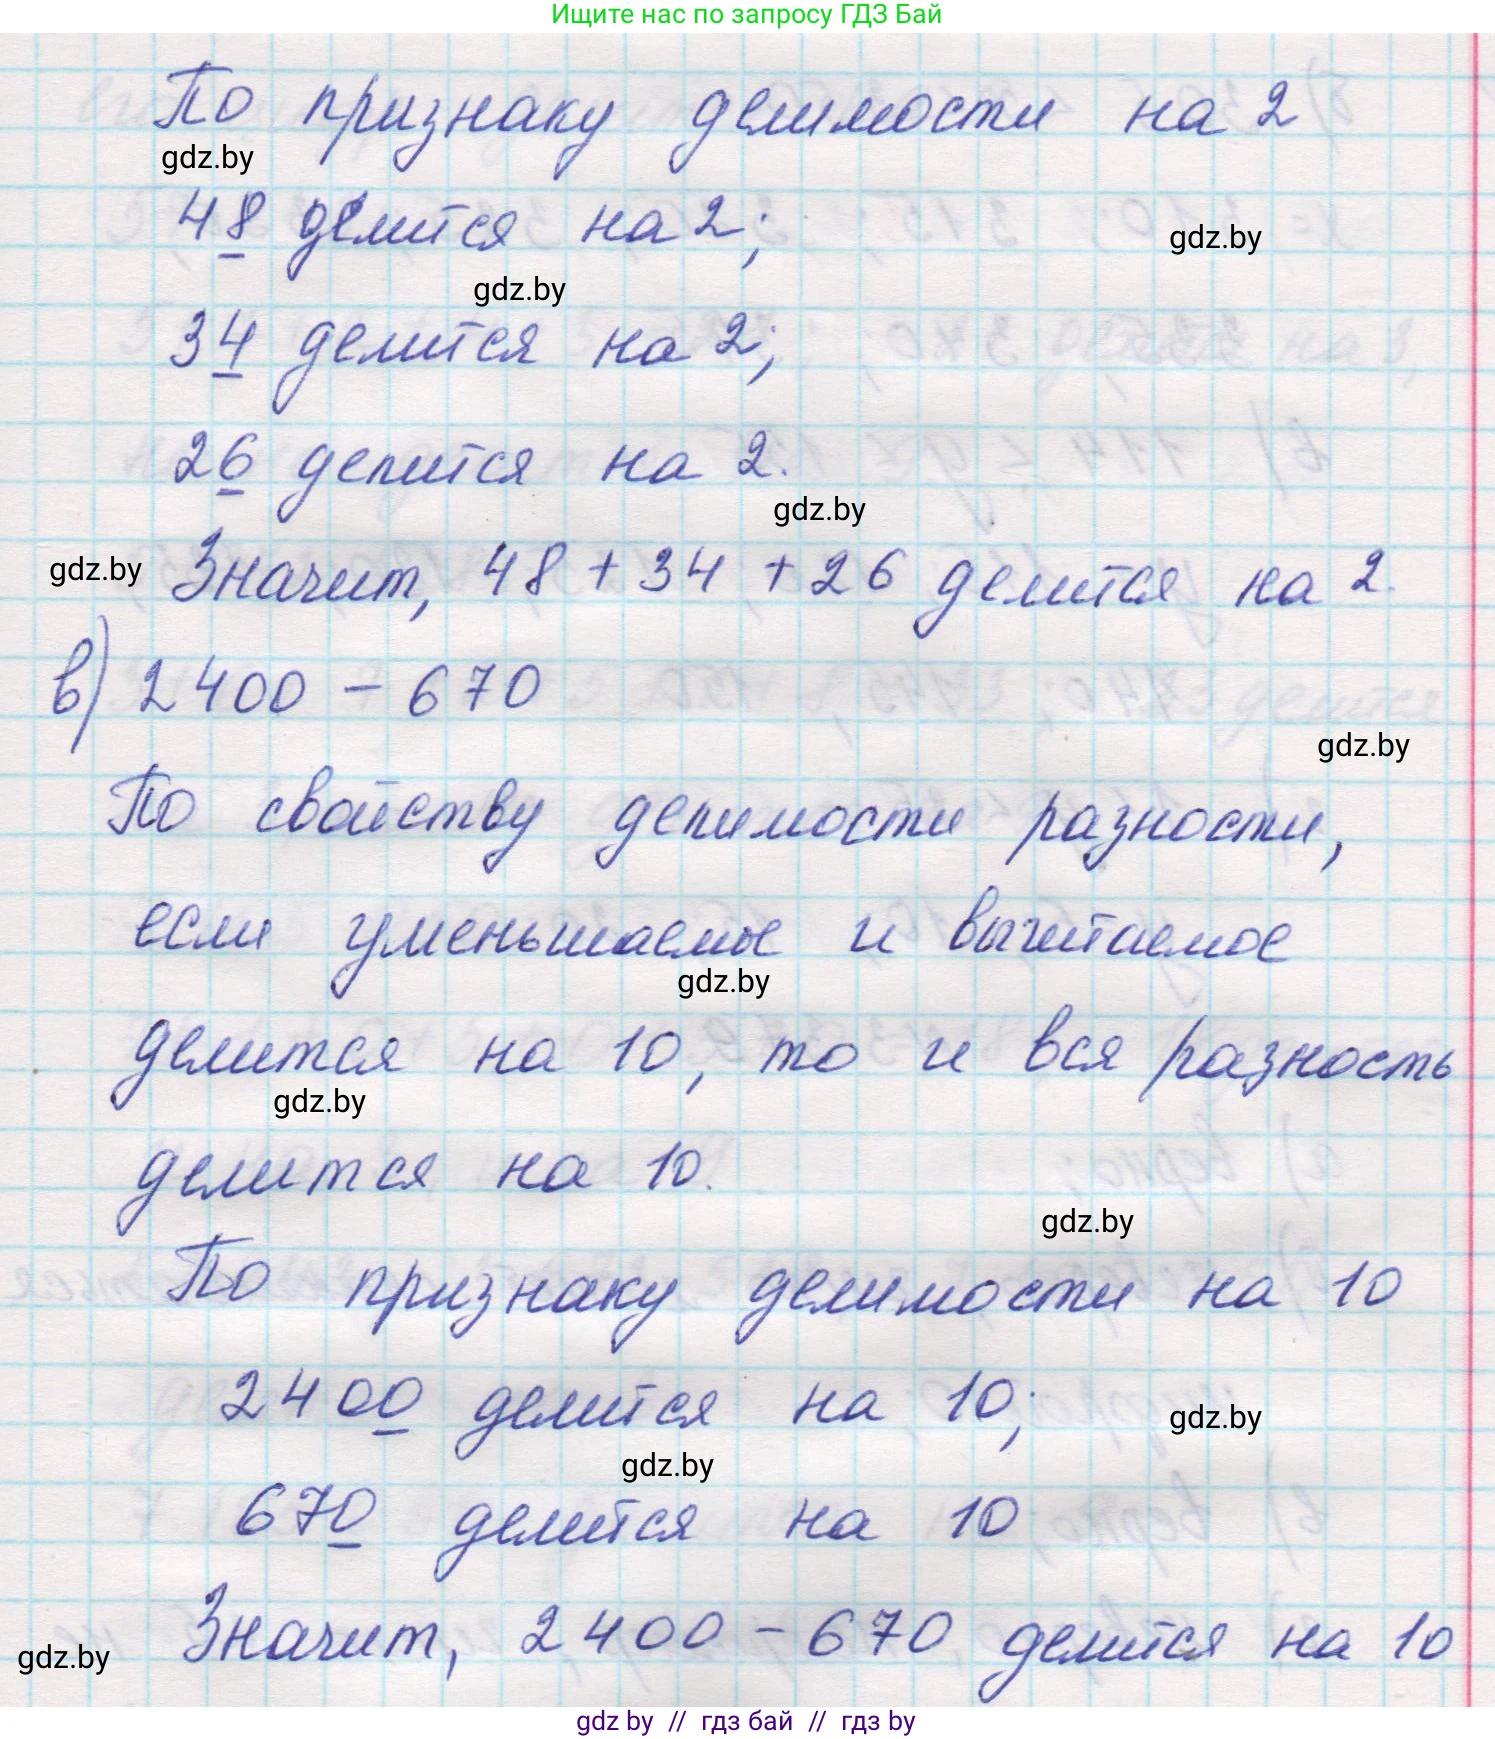 Ищите нас по запросу ГДЗ Бай
По признаку делимости на 2
gdz.by
48 делится на 2;
gdz.by
gdz.by
34 делится на 2;
26 делится на 2.
gdz.by
gdz.by
Значит, 48 + 34 + 26 делится на 2.
в) 2400 - 670
gdz.by
По свойству делимости разности,
если уменьшаемое и вычитаемое
gdz.by
делится на 10, то и вся разность
gdz.by
делится на 10.
gdz.by
По признаку делимости на 10
2400 делится на 10;
gdz.by
gdz.by
670 делится на 10
Значит, 2400 - 670 делится на 10
gdz.by
gdz by // гдз бай // гдз by